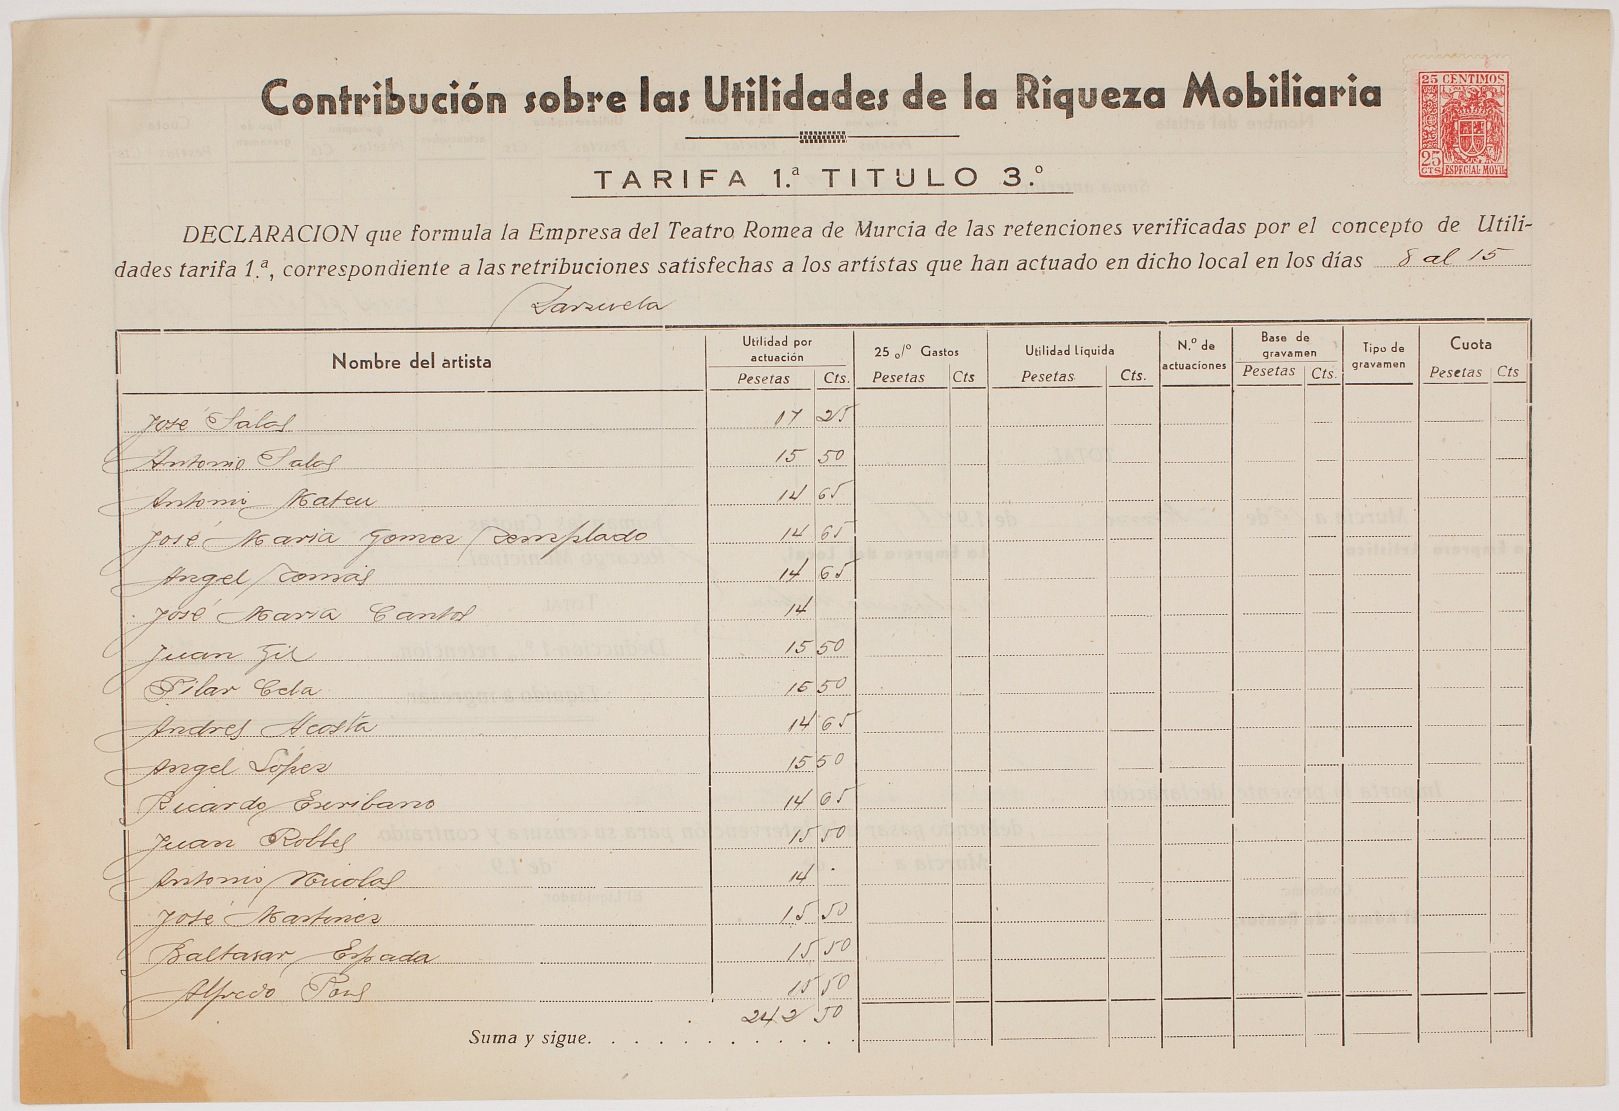 Contribución sobre las Utilidades de la Riqueza Mobiliaria
25 CENTIMOS
25
CTS
ESPECIAL MOVIL
TARIFA 1.ª TITULO 3.º
DECLARACION que formula la Empresa del Teatro Romea de Murcia de las retenciones verificadas por el concepto de Utili-
dades tarifa 1.ª, correspondiente a las retribuciones satisfechas a los artístas que han actuado en dicho local en los días 8 al 15
Zarzuela
Nombre del artista Utilidad por actuación 25 o/o Gastos Utilidad líquida N.º de actuaciones Base de gravamen Tipo de gravamen Cuota
Pesetas Cts. Pesetas Cts Pesetas Cts. Pesetas Cts. Pesetas Cts
José Salas 17 25
Antonio Salas 15 50
Antonio Mateu 14 65
José Maria Gomez Templado 14 65
Angel Tomás 14 65
José Maria Cantos 14
Juan Gil 15 50
Pilar Cela 15 50
Andres Acosta 14 65
Angel López 15 50
Ricardo Escribano 14 65
Juan Robles 15 50
Antonio Nicolas 14 .
José Martinez 15 50
Baltasar Espada 15 50
Alfredo Pons 15 50
242 50
Suma y sigue. . . . . . . . . . . .